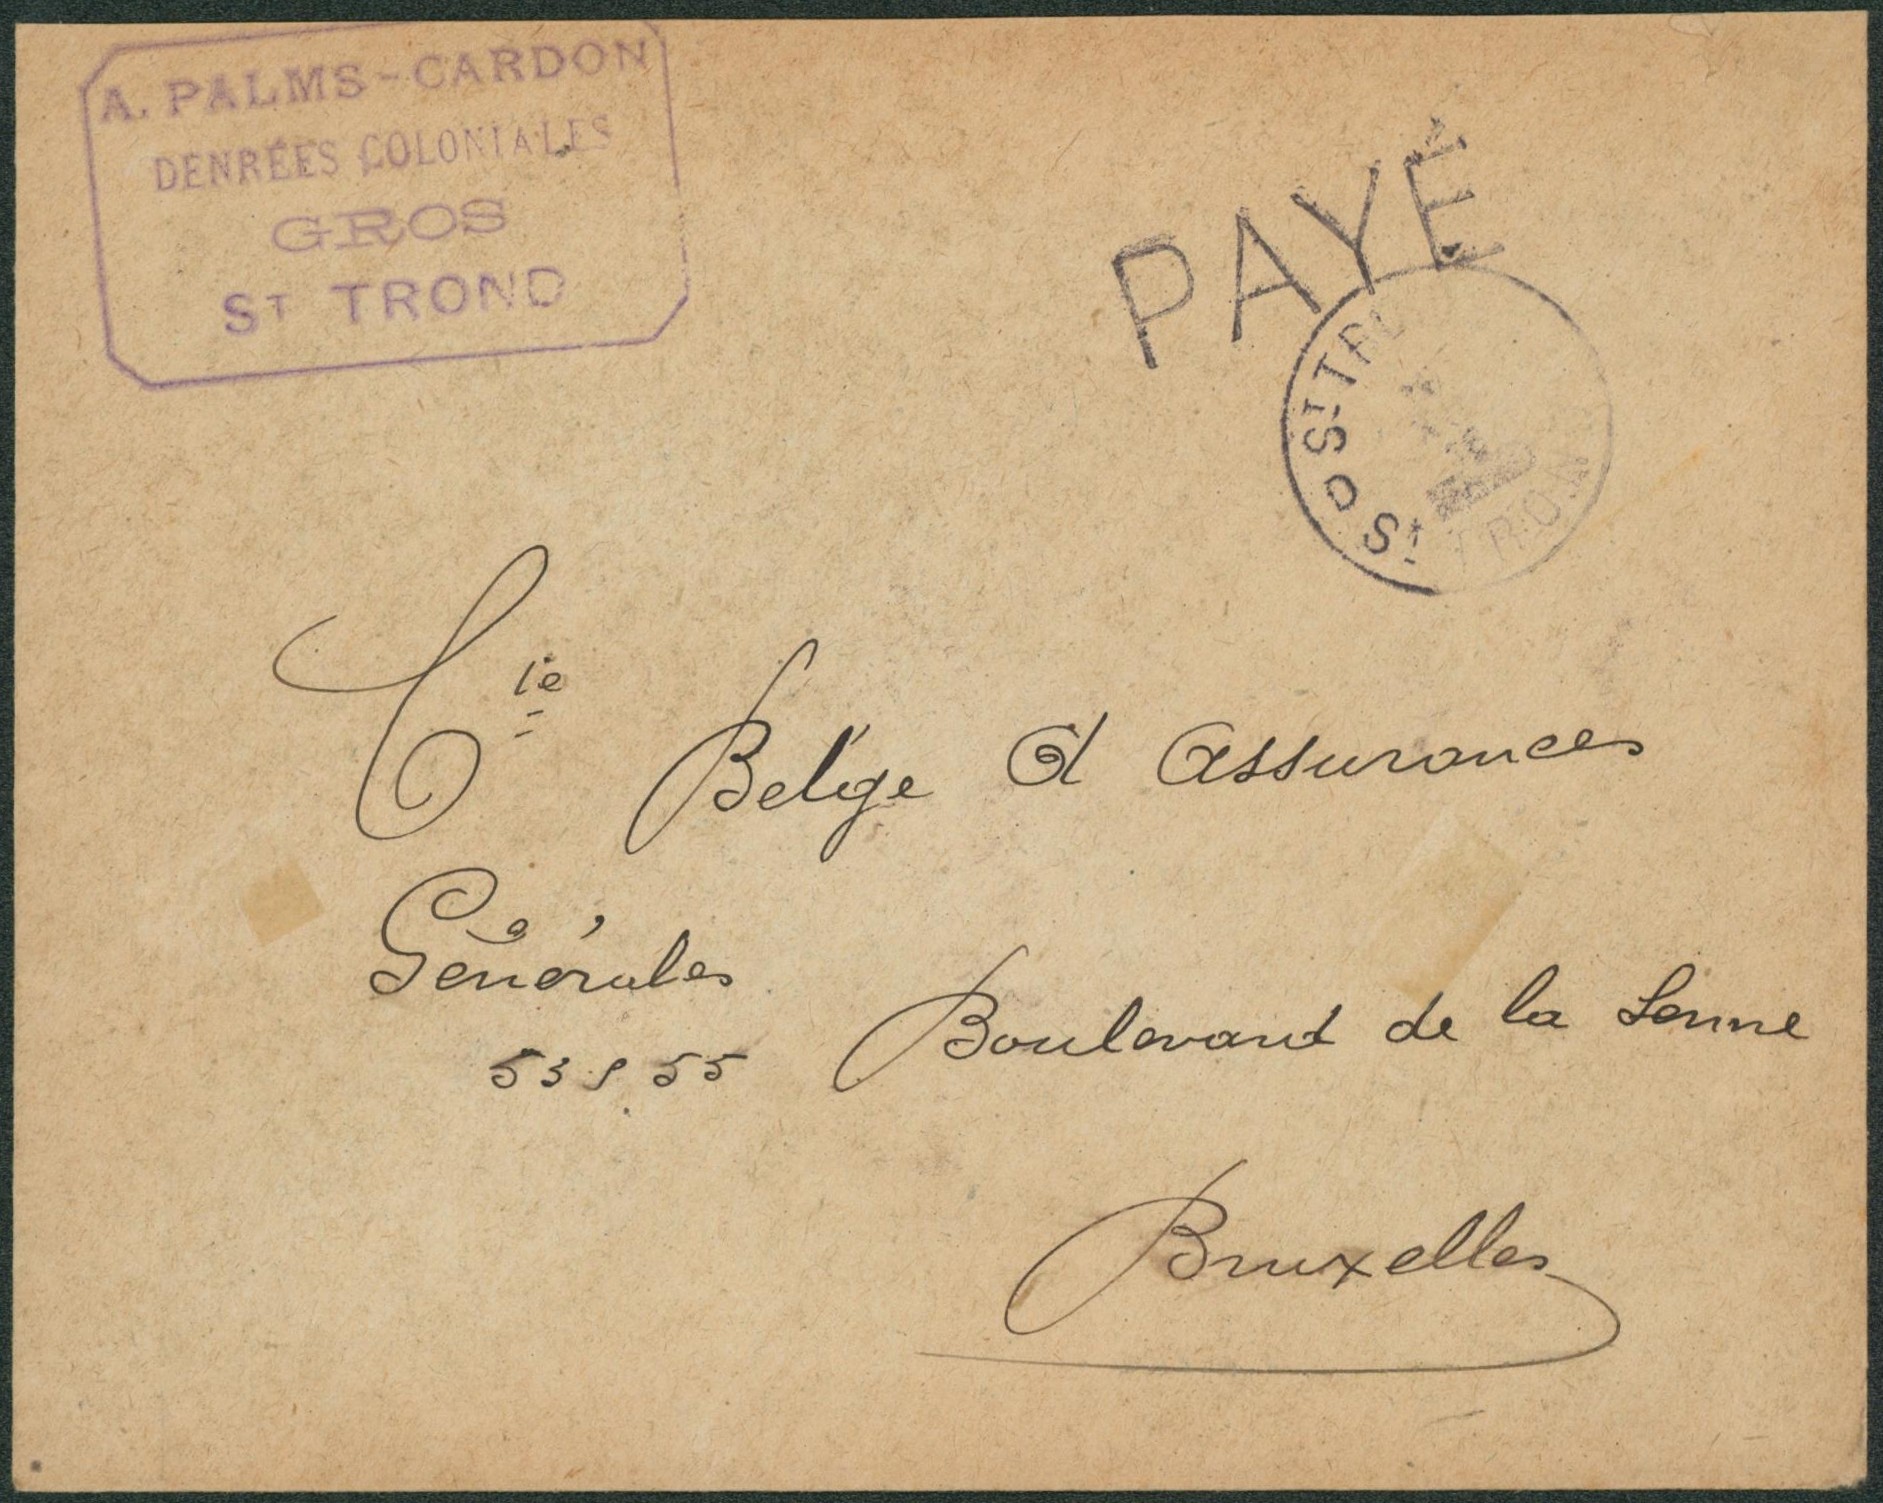 A. PALMS-CARDON
DENRÉES COLONIALES
GROS
ST TROND
PAYÉ
ST TR
D St TRON
Cie Belge d'Assurances
Générales
53 55 Boulevard de la Senne
Bruxelles